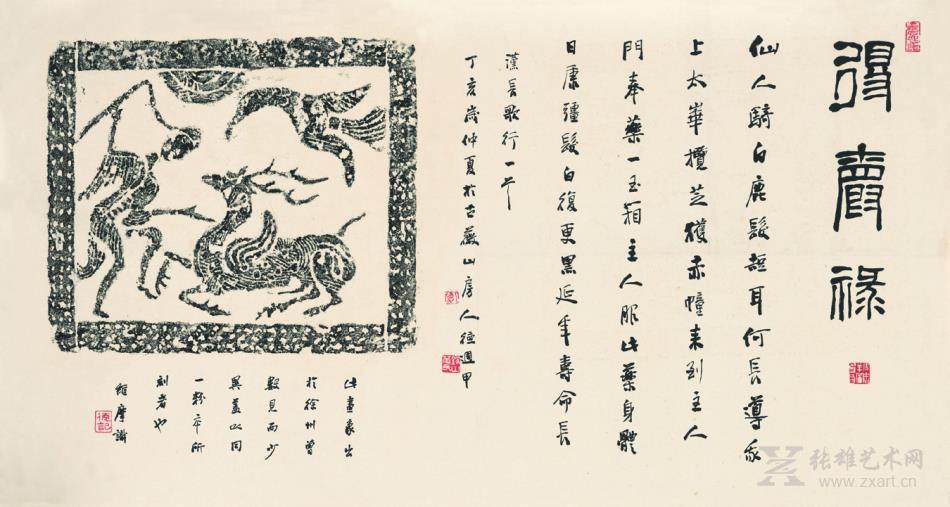 得壽祿
仙人騎白鹿髮短耳何長導我
上太華攬芝獲赤幢来到主人
門奉藥一玉箱主人服此藥身體
日康彊髮白復更黑延年壽命長
漢長歌行一首
丁亥歲仲夏於古薇山房人週甲
此畫象出
於徐州曾
數見而少
異蓋以同
一粉本所
刻者也
維摩識
张雄艺术网
www.zxart.cn